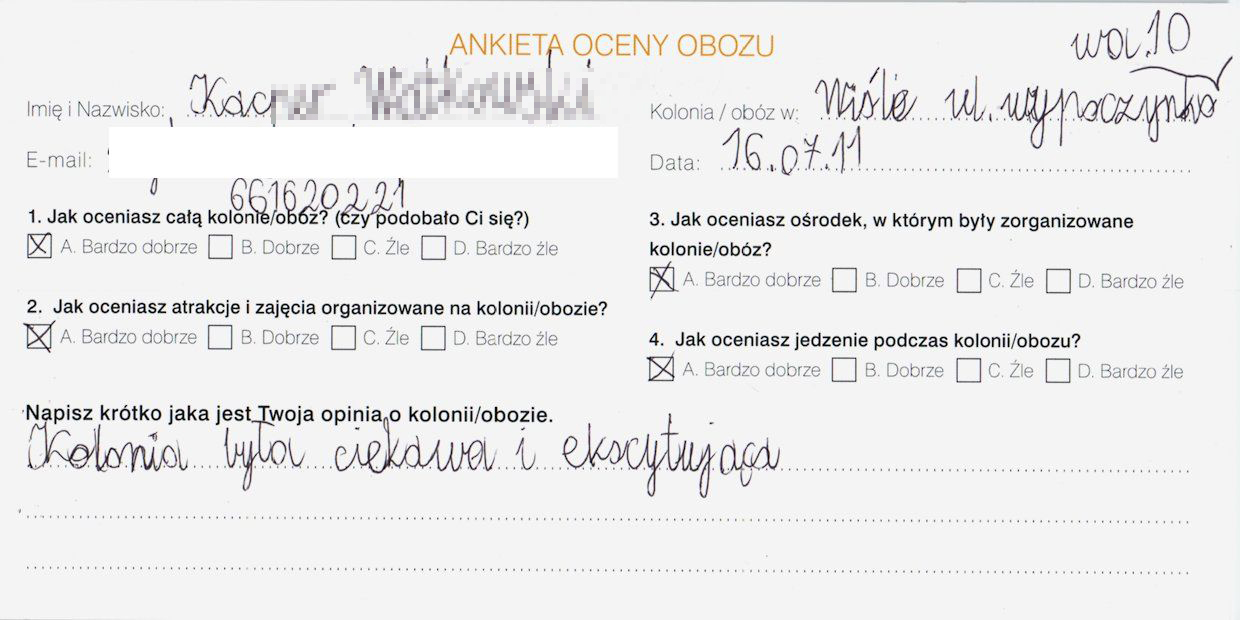 ANKIETA OCENY OBOZU
wa.10
Imię i Nazwisko:
Kolonia / obóz w: Wiśle ul. wypoczynko
E-mail:
Data: 16.07.11
661620221
1. Jak oceniasz całą kolonie/obóz? (czy podobało Ci się?)
A. Bardzo dobrze B. Dobrze C. Źle D. Bardzo źle
2. Jak oceniasz atrakcje i zajęcia organizowane na kolonii/obozie?
A. Bardzo dobrze B. Dobrze C. Źle D. Bardzo źle
3. Jak oceniasz ośrodek, w którym były zorganizowane
kolonie/obóz?
A. Bardzo dobrze B. Dobrze C. Źle D. Bardzo źle
4. Jak oceniasz jedzenie podczas kolonii/obozu?
A. Bardzo dobrze B. Dobrze C. Źle D. Bardzo źle
Napisz krótko jaka jest Twoja opinia o kolonii/obozie.
Kolonia była ciękawa i ekscytująca